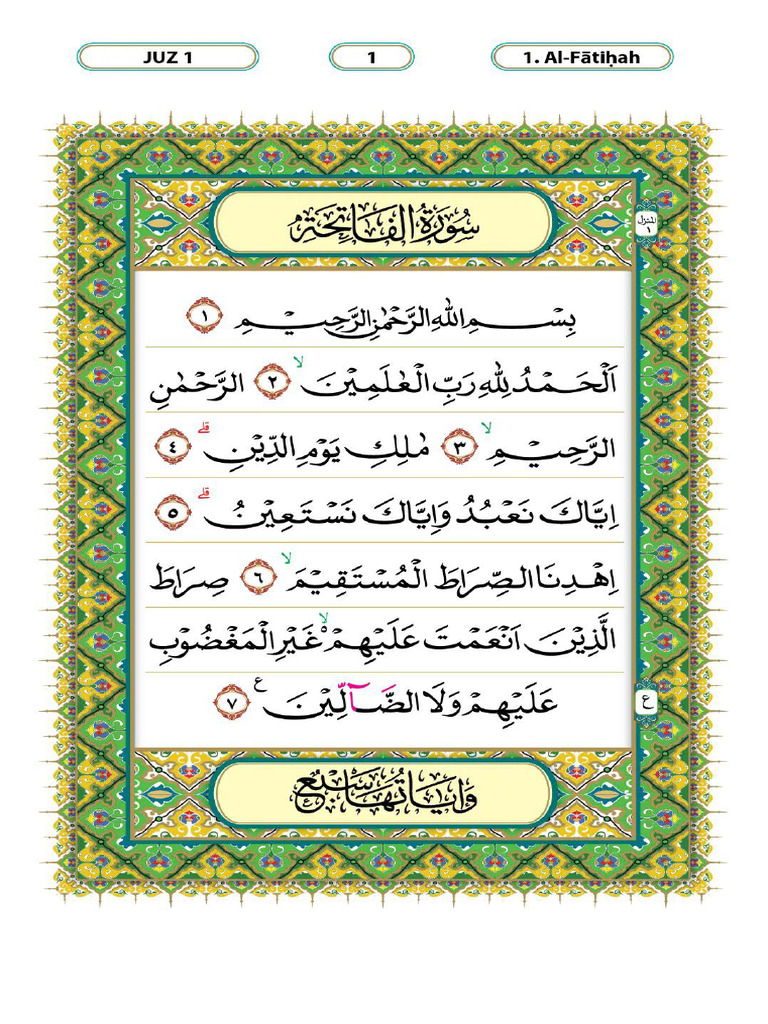 JUZ 1
1
1. Al-Fātiḥah
سُوْرَةُ الْفَاتِحَةِ
المنزل
١
بِسْمِ اللّٰهِ الرَّحْمٰنِ الرَّحِيْمِ ١
اَلْحَمْدُ لِلّٰهِ رَبِّ الْعٰلَمِيْنَۙ ٢ الرَّحْمٰنِ
الرَّحِيْمِۙ ٣ مٰلِكِ يَوْمِ الدِّيْنِۗ ٤
اِيَّاكَ نَعْبُدُ وَاِيَّاكَ نَسْتَعِيْنُۗ ٥
اِهْدِنَا الصِّرَاطَ الْمُسْتَقِيْمَۙ ٦ صِرَاطَ
الَّذِيْنَ اَنْعَمْتَ عَلَيْهِمْ ەۙ غَيْرِ الْمَغْضُوْبِ
عَلَيْهِمْ وَلَا الضَّاۤلِّيْنَ ࣖ ٧
ع
وَاٰيَاتُهَا سَبْعٌ